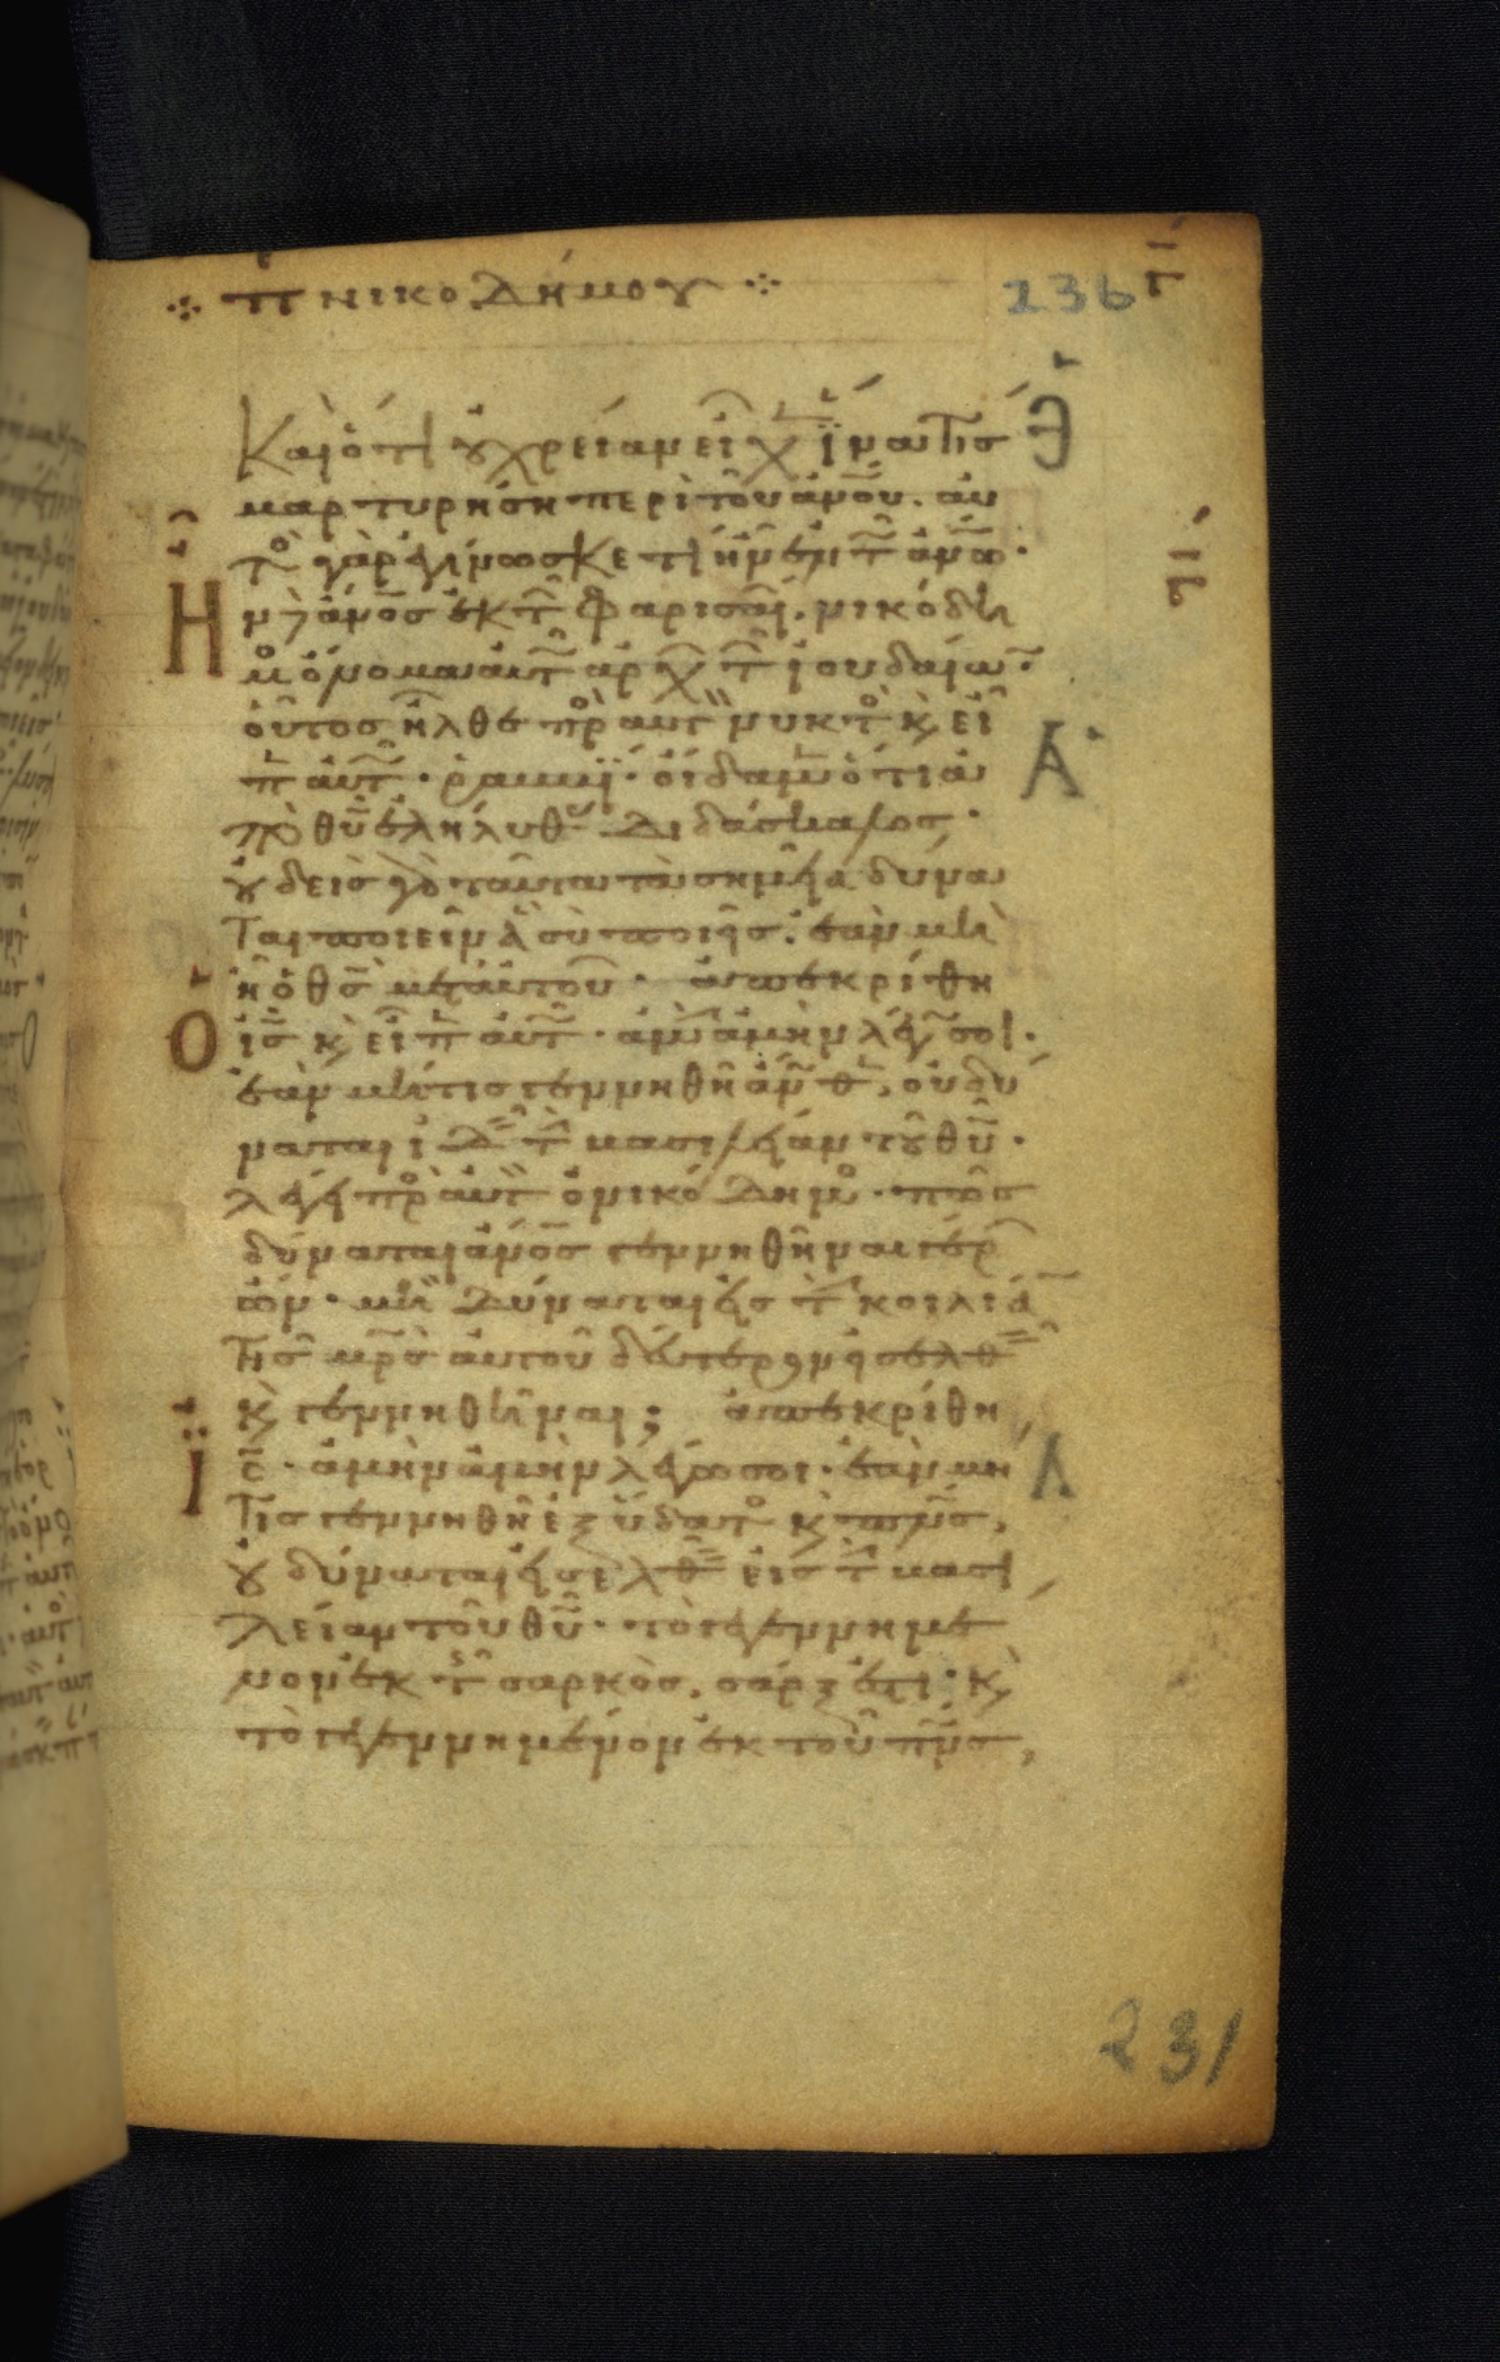 π νικοδήμου 236 Γ
Καὶ ὅτι οὐ χρείαν εἶχ ἵνα τις
μαρτυρήση περὶ τοῦ ἀνου. αὐ
τὸ γὰρ ἐγίνωσκε τί ἦν ἐν τ ἀνω.
Ην δ ἀνος ἐκ τ φαρισαί. νικόδη
μο ὄνομα αὐτ ἀρχ τ ἰουδαίω
οὗτος ἦλθε πρὸ αὐτ νυκτο κ εἶ
π αὐτ. ῥαββϊ. οἴδαμ ὅτι ἀ
πὸ θυ ἐλήλυθ διδάσκαλος.
οὐδεὶς γὰρ ταῦτα τὰ σημεῖα δύνα
ται ποιεῖν ἃ σὺ ποιεῖς. ἐὰν μὴ
ἦ ὁ θς μετ αὐτοῦ. ἀπεκρίθη
Ο ις κ εἶπ αὐτ. ἀμὴν ἀμὴν λέγ σοι.
ἐὰν μή τις γεννηθῆ ἄν θ, οὐ δύ
ναται ἰδ τ βασιλείαν τοῦ θυ.
λέγει πρὸ αὐτ ὁ νικόδημο. πῶς
δύναται ἀνος γεννηθῆναι γέρ
ων. μὴ δύναται εἰς τ κοιλία
τῆς μρς αὐτοῦ δεύτερον εἰσελθ
κ γεννηθῆναι; ἀπεκρίθη
Ϊς. ἀμὴν ἀμὴν λέγω σοι. ἐὰν μή
τις γεννηθῆ ἐξ ὕδατο κ πνς,
οὐ δύναται εἰσελθ εἰς τ βασι
λείαν τοῦ θυ. τὸ γεγεννημέ
νον ἐκ τ σαρκὸς, σάρξ ἐστι. κ
τὸ γεγεννημένον ἐκ τοῦ πνς,
231